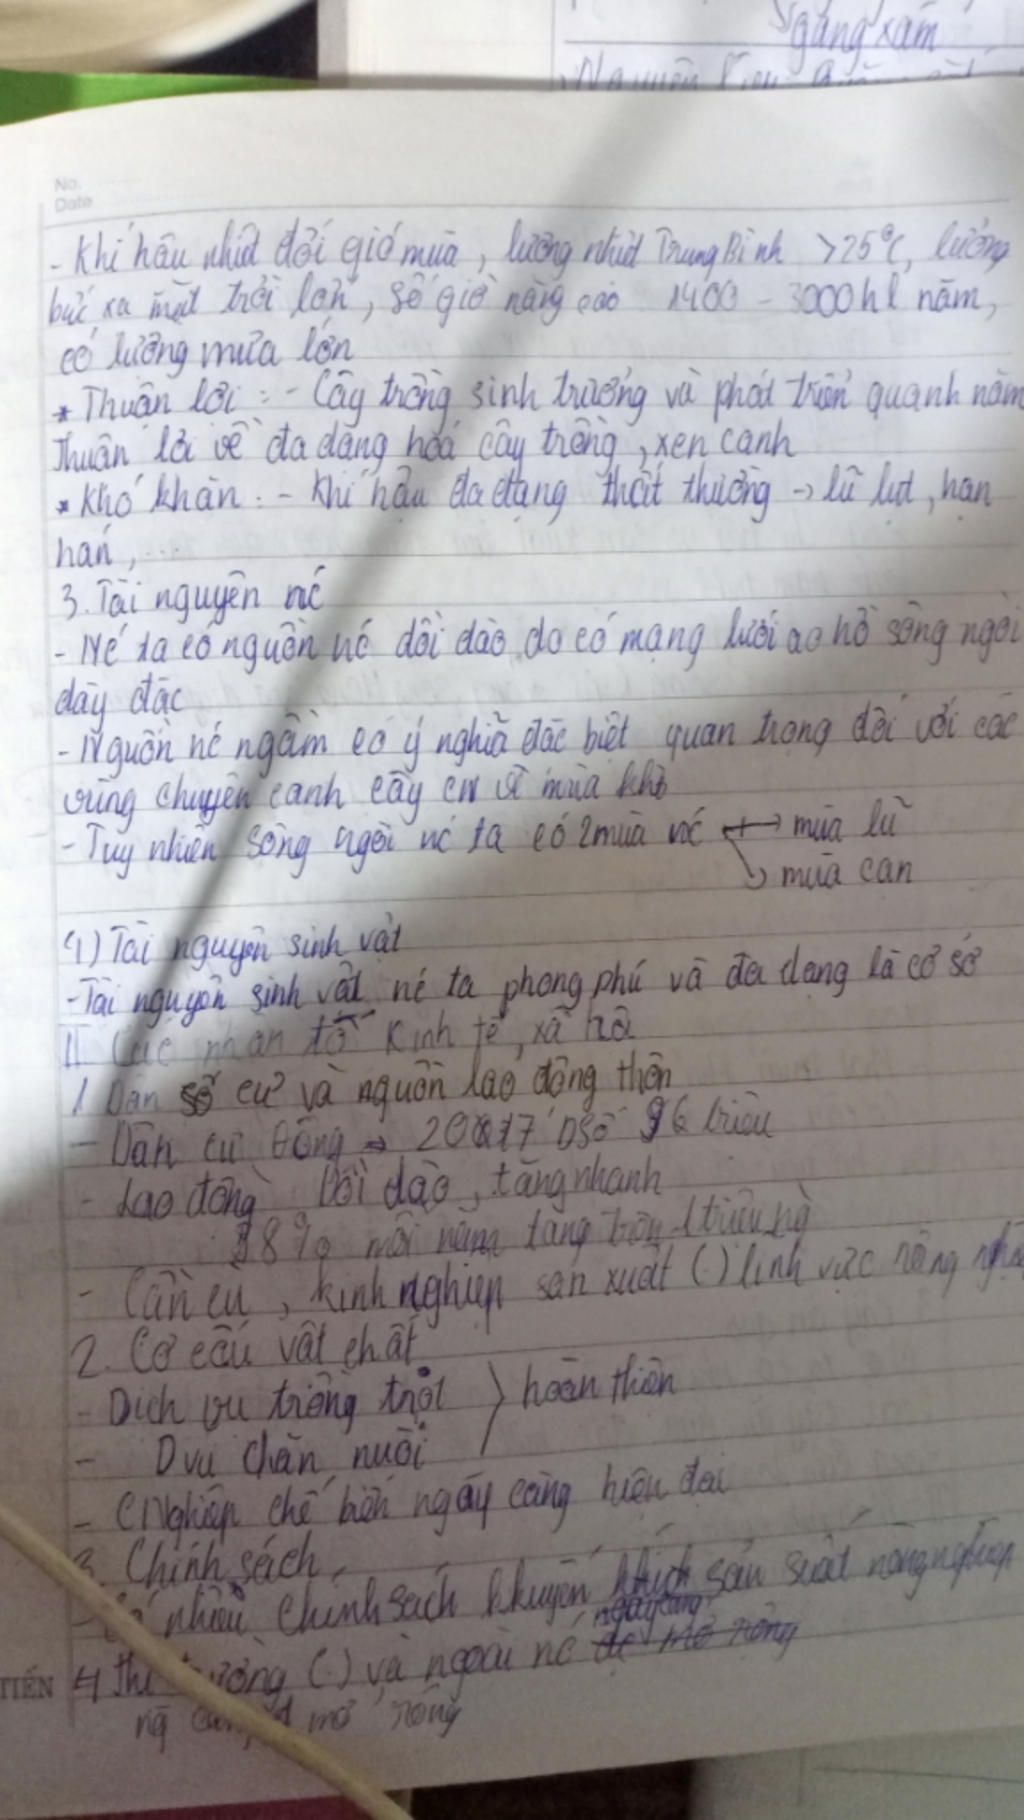 găng xám
No.
Date
- Khí hậu nhiệt đới gió mùa, lượng nhiệt Trung Bình >25°C, lượng
bức xạ mặt trời lớn, số giờ nắng cao 1400 - 3000h/ năm,
có lượng mưa lớn
* Thuận lợi : - Cây trồng sinh trưởng và phát triển quanh năm
Thuận lợi về đa dạng hoá cây trồng, xen canh
* Khó khăn : - Khí hậu đa dạng thất thường → lũ lụt, hạn
hán, ....
3. Tài nguyên nc
- Nc ta có nguồn nc dồi dào do có mạng lưới ao hồ sông ngòi
dày đặc
- Nguồn nc ngầm có ý nghĩa đặc biệt quan trọng đối với các
vùng chuyên canh cây cn về mùa khô
- Tuy nhiên sông ngòi nc ta có 2 mùa nc → mùa lũ
↘ mùa cạn
4) Tài nguyên sinh vật
- Tài nguyên sinh vật nc ta phong phú và đa dạng là cơ sở
II. Các nhân tố kinh tế, xã hội
1. Dân số cư và nguồn lao động thôn
- Dân cư đông → 2017 Dsố 96 triệu
- Lao động dồi dào, tăng nhanh
58% mỗi năm tăng trên 1 triệu ng
- Cần cù, kinh nghiệp sản xuất (.) lĩnh vực nông
2. Cơ cấu vật chất
- Dịch vụ trồng trọt } hoàn thiện
- Dvụ chăn nuôi
- CNghiệp chế biến ngày càng hiện đại
3. Chính sách
- Có nhiều chính sách khuyến khích sản suất nông nghiệp
ngày càng
TIẾN 4 thị trường (.) và ngoài nc đc mở rộng
ng càng mở rộng